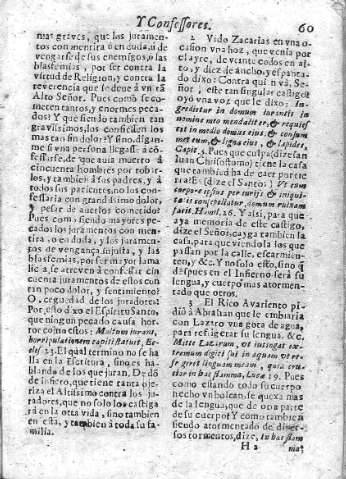 Y Confessores. 60
mas graves, que los juramen-
tos con mentira ò en duda, ù de
vengarse de sus enemigos, o las
blasfemias, por ser contra la
virtud de Religion, y contra la
reverencia que se deve à vn tã
Alto Señor. Pues como se co-
meten tantos, y enormes peca-
dos? Y que siendo tambien tan
gravissimos, los confiessen los
mas tan sin dolor? Y si no, digan-
me si vna persona llegasse à cõ-
fessarse, de que avia muerto à
cincuenta hombres por robar-
los, y tambien à sus padres, y à
todos sus parientes, no los con-
fessaria con grandissimo dolor,
y pesar de averlos cometido?
Pues como, siendo mayores pe-
cados los juramentos con men-
tira, o en duda, y los juramen-
tos de vengança injusta, y las
blasfemias, por ser mayor la ma-
licia, se atreven à confessar cin-
cuenta juramentos de estos con
tan poco dolor, y sentimiento?
O, ceguedad de los juradores!
Por esto dixo el Espiritu Santo,
que ningun pecado causa hor-
ror como estos: Multum iurans,
horripilationem capiti statuet, Ec-
cles. 23. El qual termino no se ha-
lla en la Escritura, sino es ha-
blando de los que juran, De dõ
de infiero, que tiene tanta oje-
riza el Altissimo contra los ju-
radores, que no solo los castiga
rà en la otra vida, sino tambien
en esta, y tambien à toda su fa-
milia.
2. Vido Zacarias en vna o-
casion vna hoz, que venia por
el ayre, de veinte codos en al-
to, y diez de ancho, y espanca-
do dixo: Contra qui n và, Se-
ñor, este tan singular castigo?
oyò vna voz que le dixo: In-
gredietur in domum iurantis in
nomine meo mendaciter, & requies-
cet in medio domus eius, & consum
met eum, & ligna eius, & lapides,
Capit. Pues que culpa (dize san
Juan Chrisostomo) tiene la casa
que tambien ha de caer por tie-
rra? (dize el Santo) Vt cum
corpore ipso per
domum ruinam
Homil. 26. Y assi, para que
aya memoria de este castigo,
dize el Señor, cayga tambien la
casa, para que viendola los que
passan por la calle, escarmien-
ten, &c. Y no solo esto, sino q̃
despues en el Infierno serà su
lengua, y cuerpo mas atormen-
tado que otros.
3 El Rico Avariento pi-
diò à Abrahan que le embiaria
con Lazaro vna gota de agua,
para refrigerar su lengua, &c.
Mitte Lazarum, vt intingat ex-
tremum digiti sui in aquam vt re-
frigeret linguam meam, quia cru-
cior in hac flamma, Lucæ 19. Pues
como estando todo su cuerpo
hecho vn bolcan, se quexa mas
de la lengua, que de otra parte
de su cuerpo? Y como tambien
atormentado de diver-
sos tormentos, dize, in hac flam
H 2 ma;